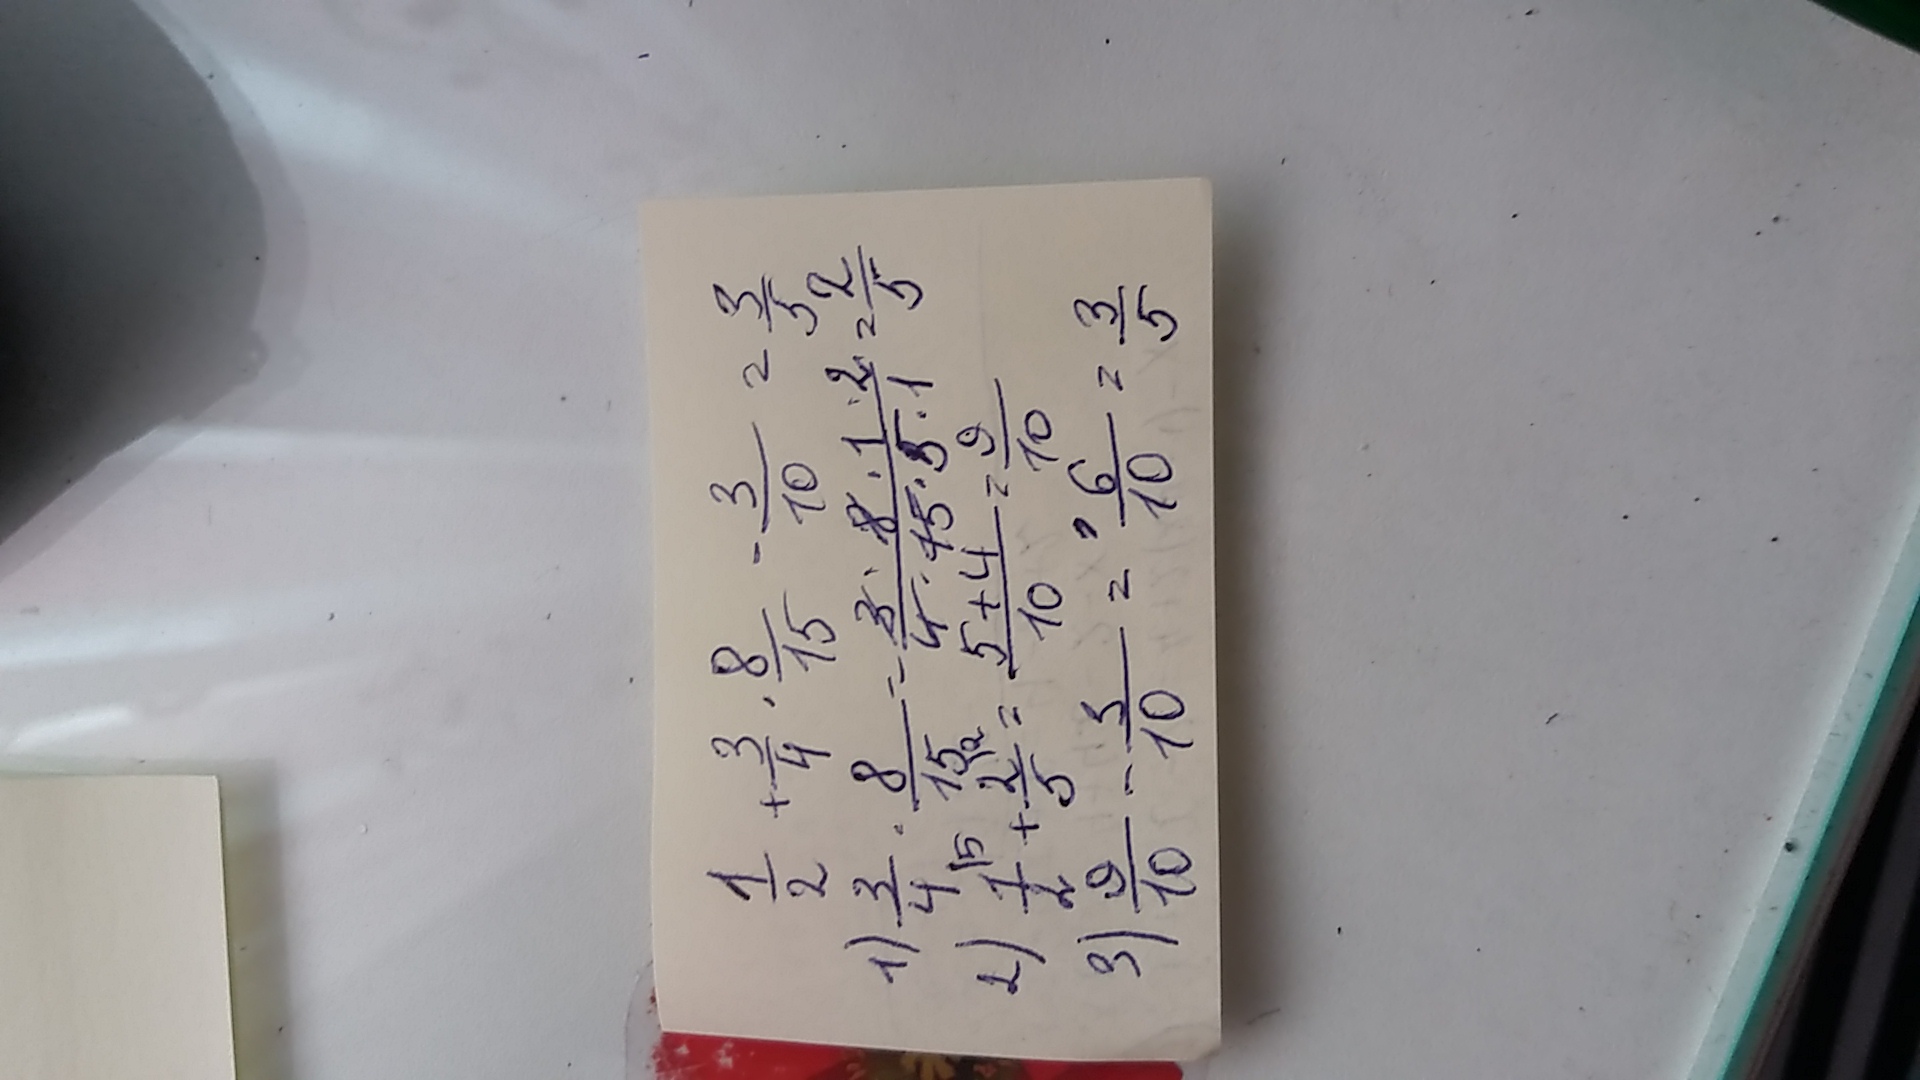 1/2 + 3/4 · 8/15 - 3/10 = 3/5
1) 3/4 · 8/15 = 3·8·1·2/4·15·5·1 = 2/5
2) 1/2 |5 + 2/5 |2 = 5+4/10 = 9/10
3) 9/10 - 3/10 = 6/10 = 3/5